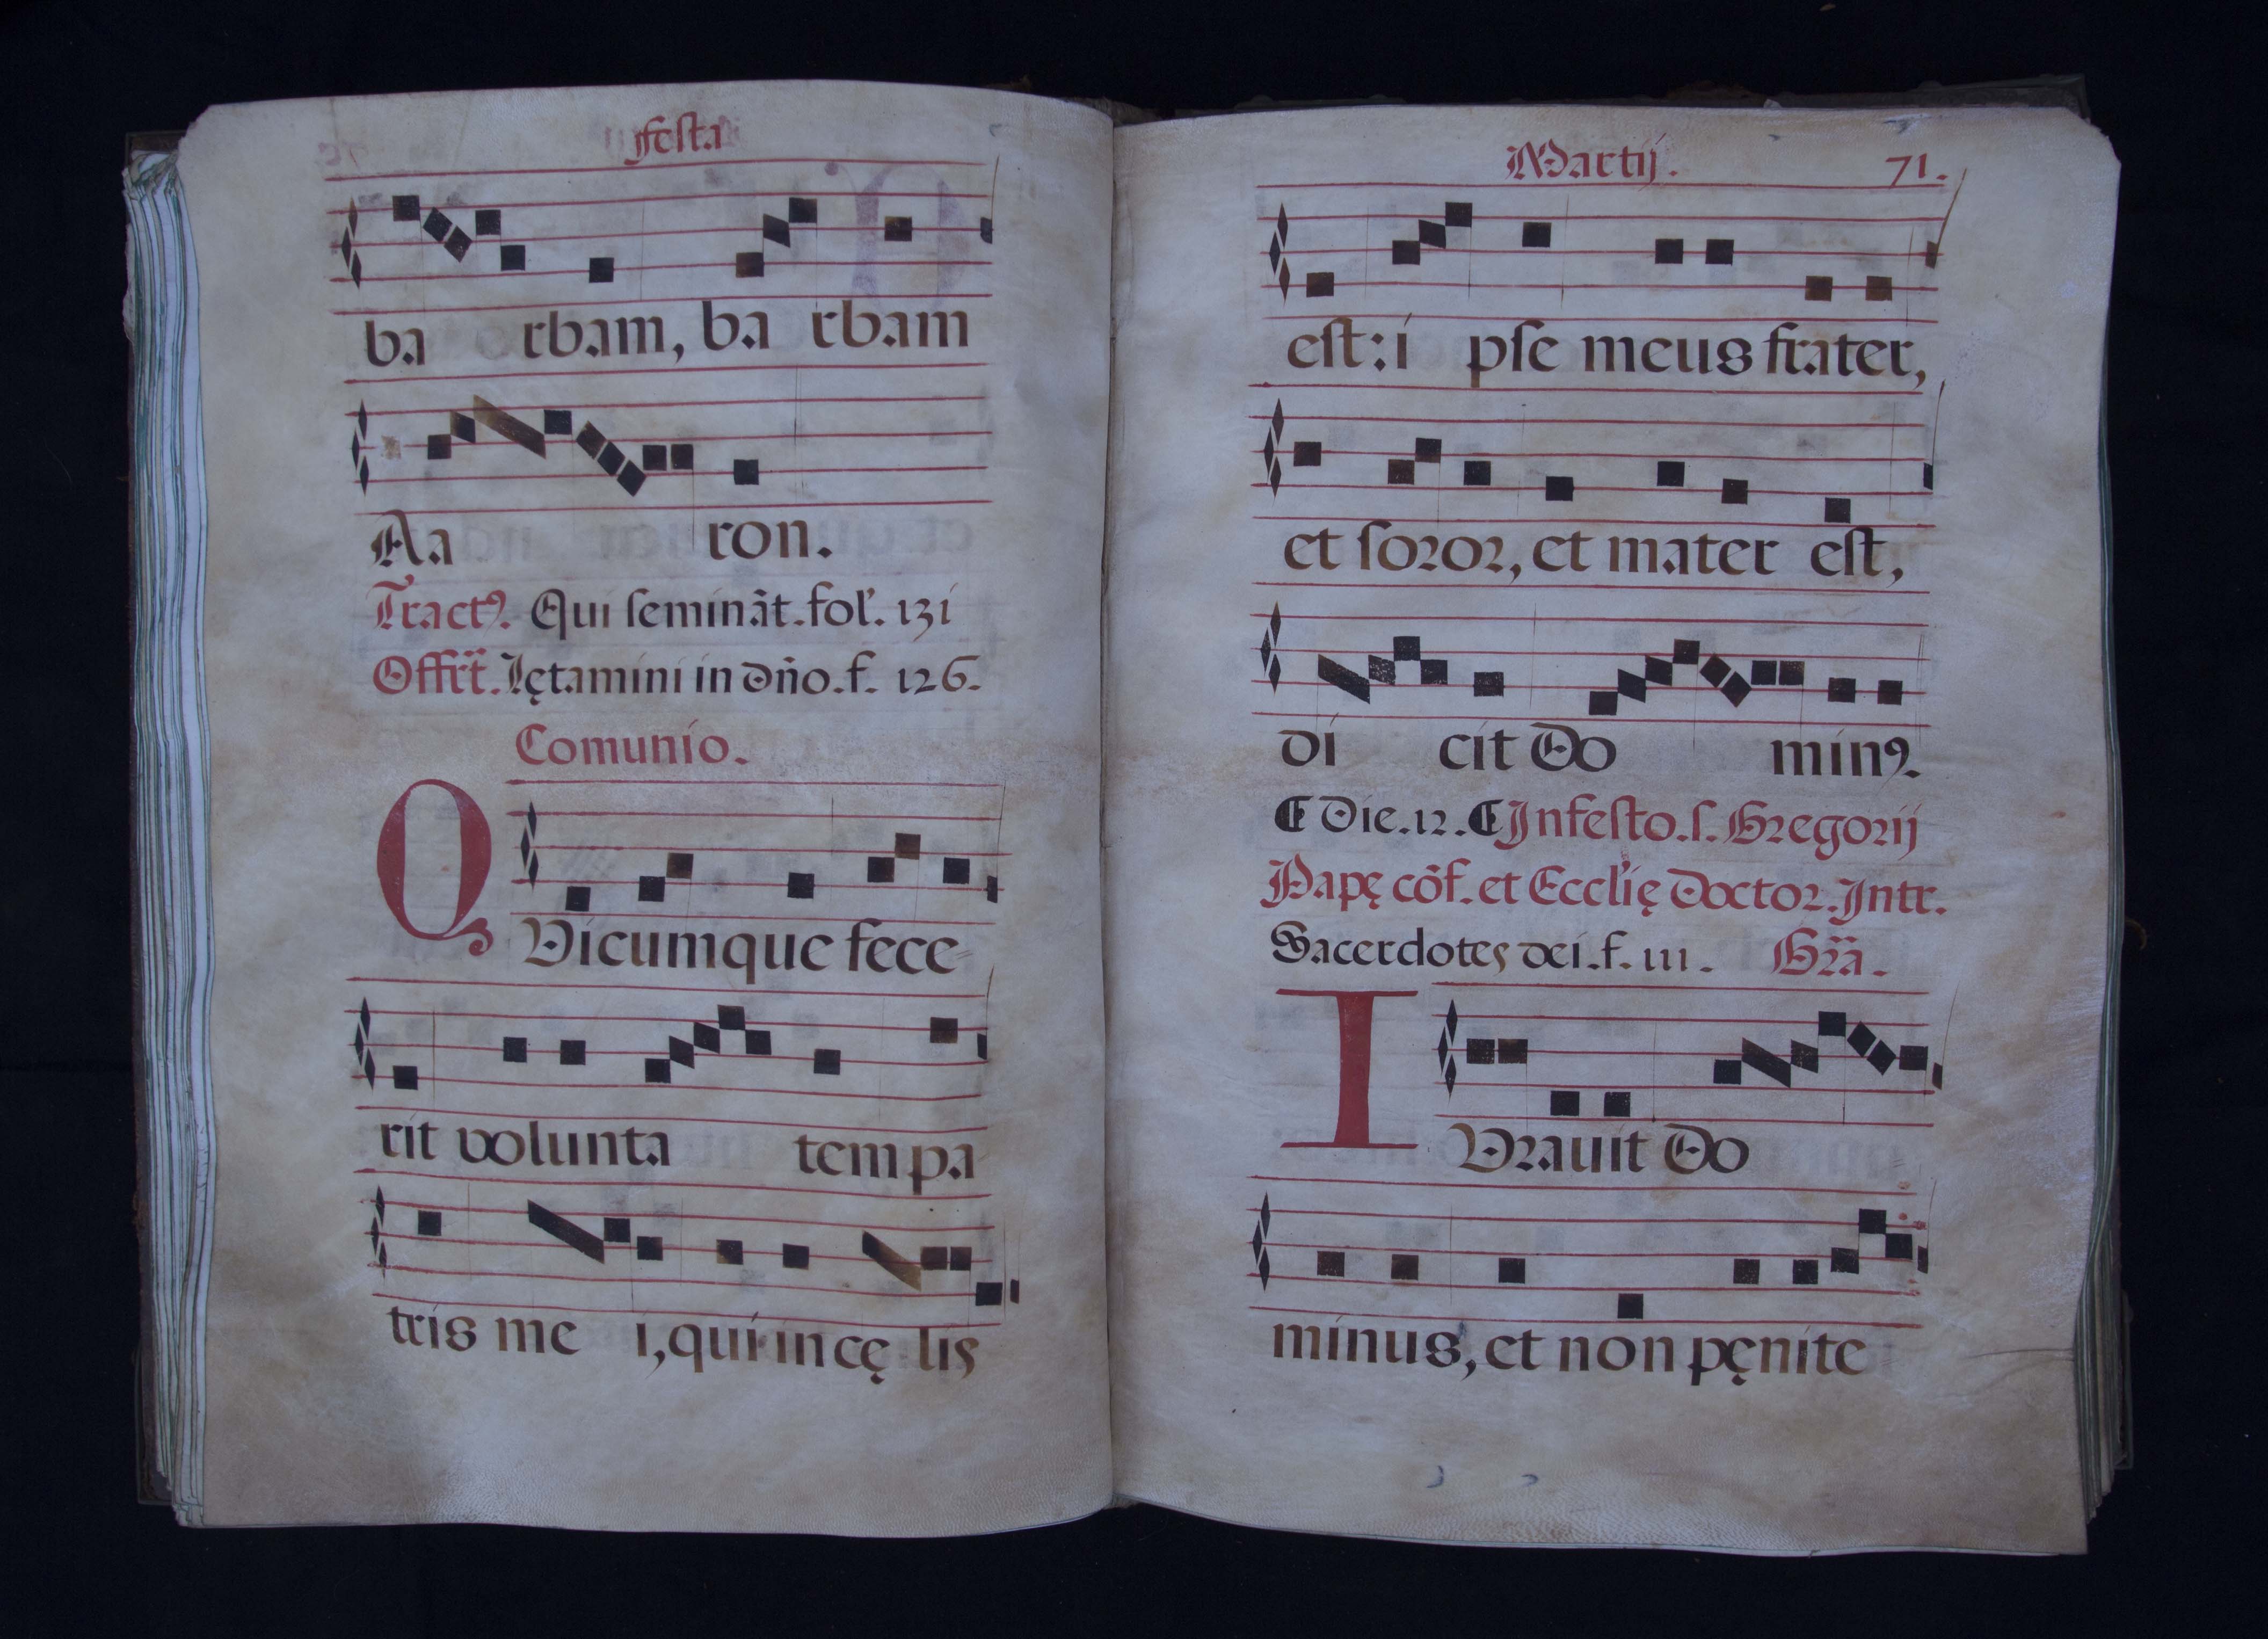 Festa
ba rbam, ba rbam
Aa ron.
Tractꝰ. Qui seminãt. fol'. 131
Offrt̃. Lętamini in dño. f. 126.
Comunio.
QVicumque fece=
rit volunta tem pa
tris me i, qui in cę lis
Martij. 71.
est: i pse meus frater,
et soror, et mater est,
di cit Do minꝰ.
Die. 12. In festo. s. Gregorij
Papę cõf. et Eccl'ię Doctor. Intr.
Sacerdotes dei. f. 111. Grã.
IVravit Do
minus, et non pęnite=